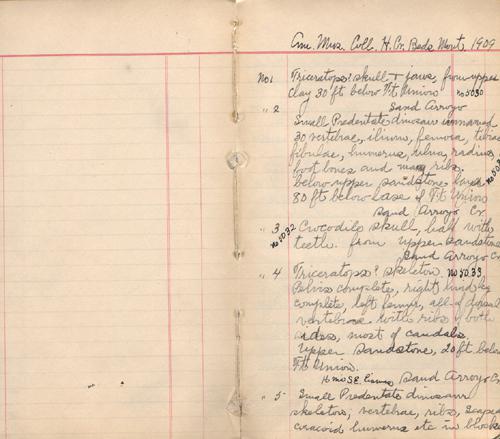 Am. Mus. Coll. H. Cr. Beds Mont. 1909
No 1 Triceratops? skull + jaws, from upper
clay 30 ft below Ft Union no 5030
Sand Arroyo
" 2 Small Predentate dinosaur unnamed
30 vertebrae, iliums, femora, tibiae
fibulae, humerus, ulna, radius,
foot bones and many ribs. no 503
below upper sandstone
80 ft below base of Ft. Union
Sand Arroyo Cr
" 3 Crocodile skull, half with
no 5032 teeth. from upper sandstone
Sand Arroyo Cr
" 4 Triceratops? skeleton. no 5033
Pelvis complete, right hind leg
complete, left femur, all of dorsal
vertebrae with ribs of both
sides, most of caudals.
Upper sandstone, 20 ft below
Ft. Union.
Sand Arroyo Cr
" 5 Small Predentate dinosaur
skeleton; vertebrae, ribs, scapula
coracoid humerus etc in blocks